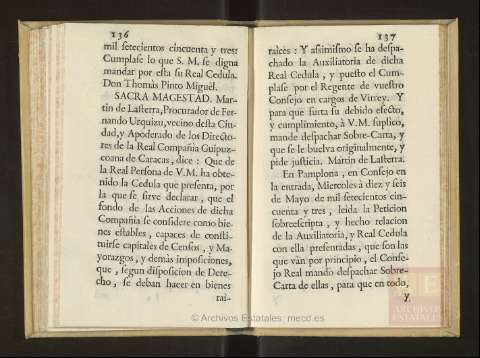 136
mil setecientos cincuenta y tres:
Cumplase lo que S. M. se digna
mandar por esta su Real Cedula.
Don Thomàs Pinto Miguèl.
SACRA MAGESTAD. Mar-
tin de Lasterra, Procurador de Fer-
nando Urquizu, vecino desta Ciu-
dad, y Apoderado de los Directo-
res de la Real Compañia Guipuz-
coana de Caracas, dice : Que de
la Real Persona de V.M. ha obte-
nido la Cedula que presenta, por
la que se sirve declarar, que el
fondo de las Acciones de dicha
Compañia se considere como bie-
nes estables, capaces de consti-
tuirse capitales de Censos, y Ma-
yorazgos, y demàs imposiciones,
que, segun disposicion de Dere-
cho, se deban hacer en bienes
rai-
137
raìces : Y assimismo se ha despa-
chado la Auxiliatoria de dicha
Real Cedula, y puesto el Cum-
plase por el Regente de vuestro
Consejo en cargos de Virrey. Y
para que surta su debido efecto,
y cumplimiento, à V.M. suplico,
mande despachar Sobre-Carta, y
que se le buelva originalmente, y
pide justicia. Martin de Lasterra.
En Pamplona, en Consejo en
la entrada, Miercoles à diez y seis
de Mayo de mil setecientos cin-
cuenta y tres, leida la Peticion
sobreescripta, y hecho relacion
de la Auxiliatoria, y Real Cedula
con ella presentadas, que son las
que vàn por principio, el Conse-
jo Real mando despachar Sobre-
Carta de ellas, para que en todo,
y
© Archivos Estatales; mecd.es
ARCHIVOS
ESTATALES